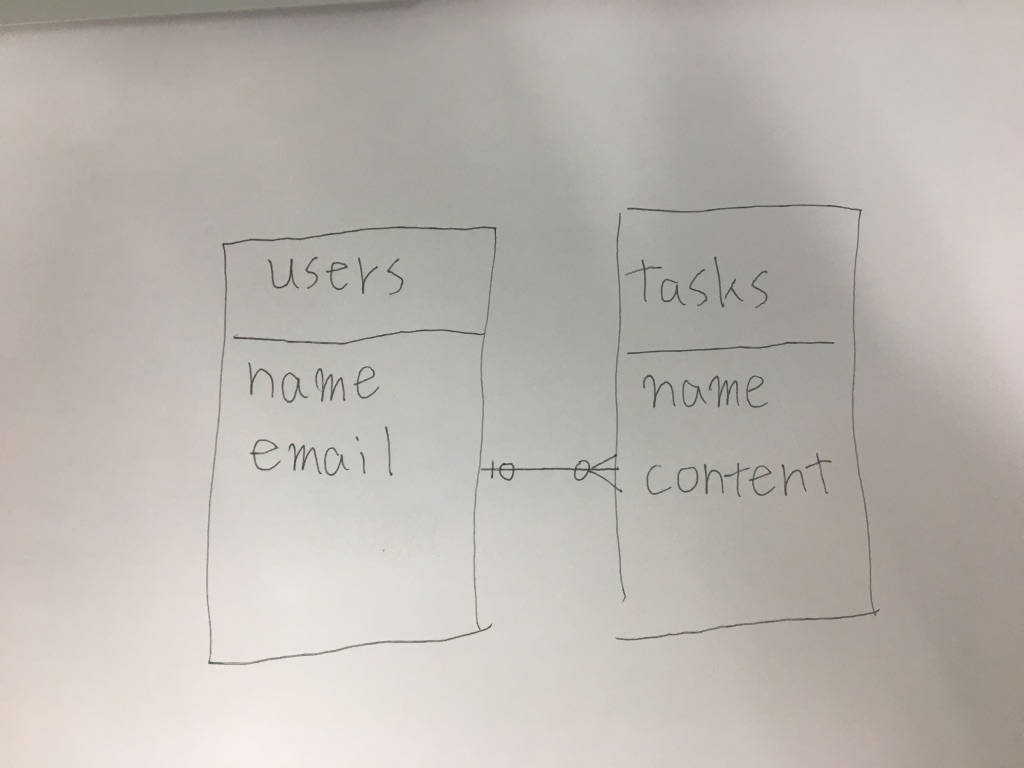 users
name
email
tasks
name
content